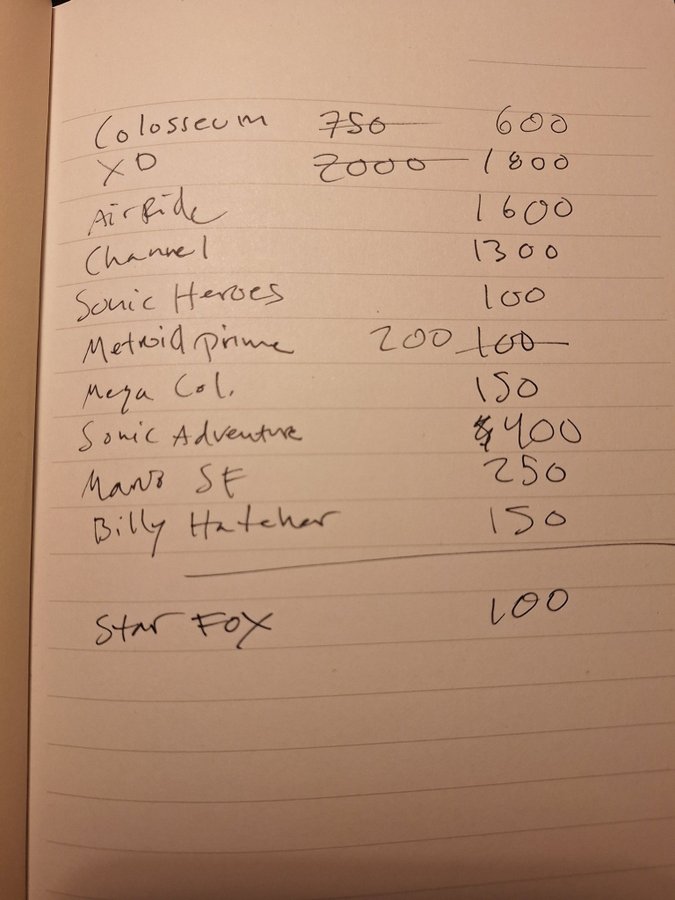 Colosseum 750 600
XD 2000 1800
AirRide 1600
Channel 1300
Sonic Heroes 100
Metroid prime 200 100
Mega Col. 150
Sonic Adventure 400
SF 250
Billy Hatcher 150
Star Fox 100